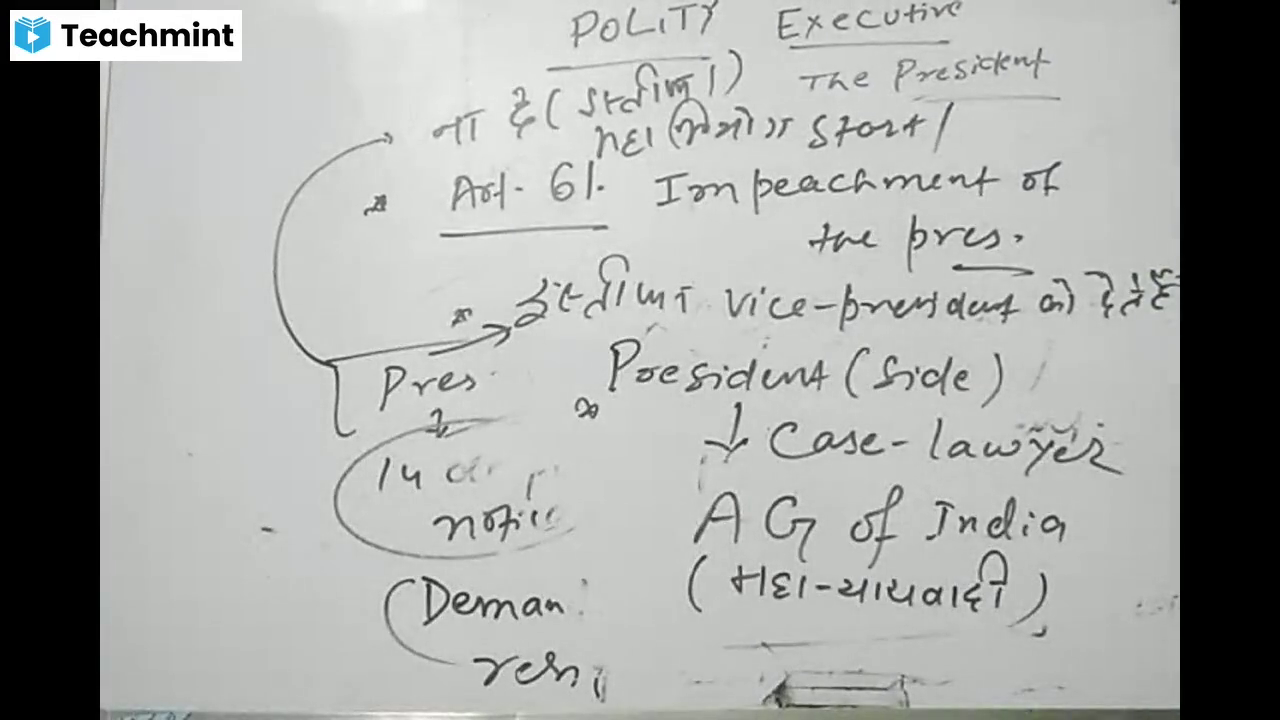 Teachmint
POLITY Executive
The President
ना दे (इस्तीफा)
महाभियोग start
Art- 61. Impeachment of
the pres.
इस्तीफा vice-president को देते हैं
Pres
President (side)
Case-lawyer
14
notice
AG of India
(महा-यायवादी)
Deman
resi